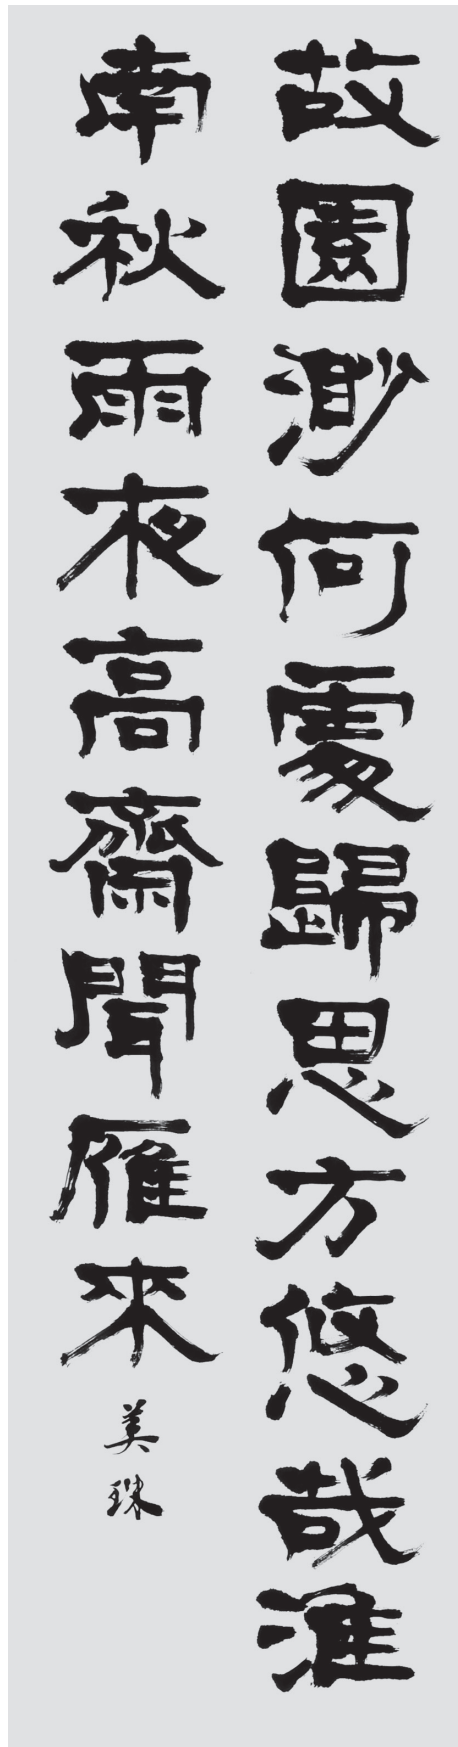 故園渺何處歸思方悠哉淮
南秋雨夜高齋聞雁來
美珠